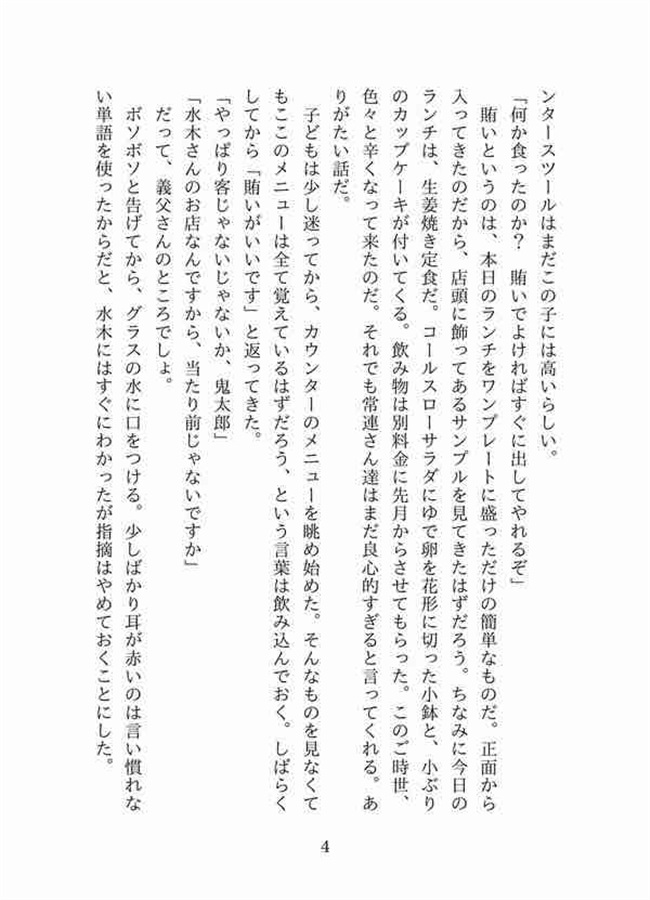 ンタースツールはまだこの子には高いらしい。
「何か食ったのか？　賄いでよければすぐに出してやれるぞ」
　賄いというのは、本日のランチをワンプレートに盛っただけの簡単なものだ。正面から
入ってきたのだから、店頭に飾ってあるサンプルを見てきたはずだろう。ちなみに今日の
ランチは、生姜焼き定食だ。コールスローサラダにゆで卵を花形に切った小鉢と、小ぶり
のカップケーキが付いてくる。飲み物は別料金に先月からさせてもらった。このご時世、
色々と辛くなって来たのだ。それでも常連さん達はまだ良心的すぎると言ってくれる。あ
りがたい話だ。
　子どもは少し迷ってから、カウンターのメニューを眺め始めた。そんなものを見なくて
もここのメニューは全て覚えているはずだろう、という言葉は飲み込んでおく。しばらく
してから「賄いがいいです」と返ってきた。
「やっぱり客じゃないじゃないか、鬼太郎」
「水木さんのお店なんですから、当たり前じゃないですか」
　だって、義父さんのところでしょ。
　ボソボソと告げてから、グラスの水に口をつける。少しばかり耳が赤いのは言い慣れな
い単語を使ったからだと、水木にはすぐにわかったが指摘はやめておくことにした。
4